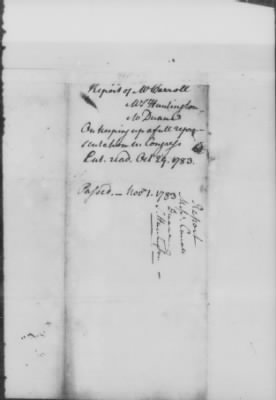 Report of Mr Carroll
Mr Huntington
Mr Duane
On keeping up a full repre-
sentation in Congress
Ent. read. Oct 29. 1783.
Passed — Nov 1. 1783
Report
Mr Carroll
Duane
Huntington